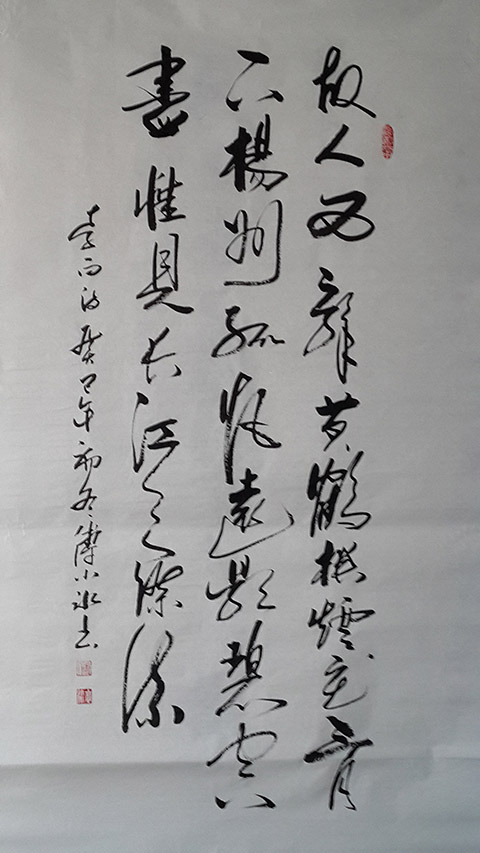 故人西辭黄鶴樓煙花三月
下楊州孤帆遠影碧空
盡惟見长江天際流
李白诗癸巳年初冬傅小冰书